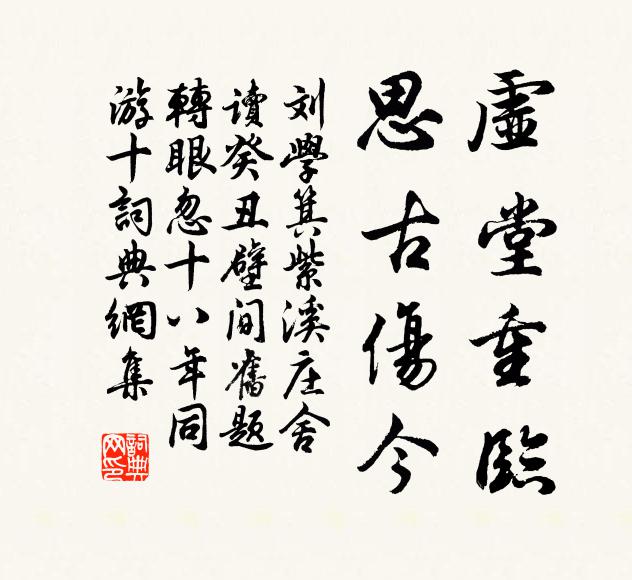 虛堂重臨
思古傷今
刘學箕紫溪庄舍
讀癸丑壁間舊題
轉眼忽十八年同
游十詞典網集
詞典
网印